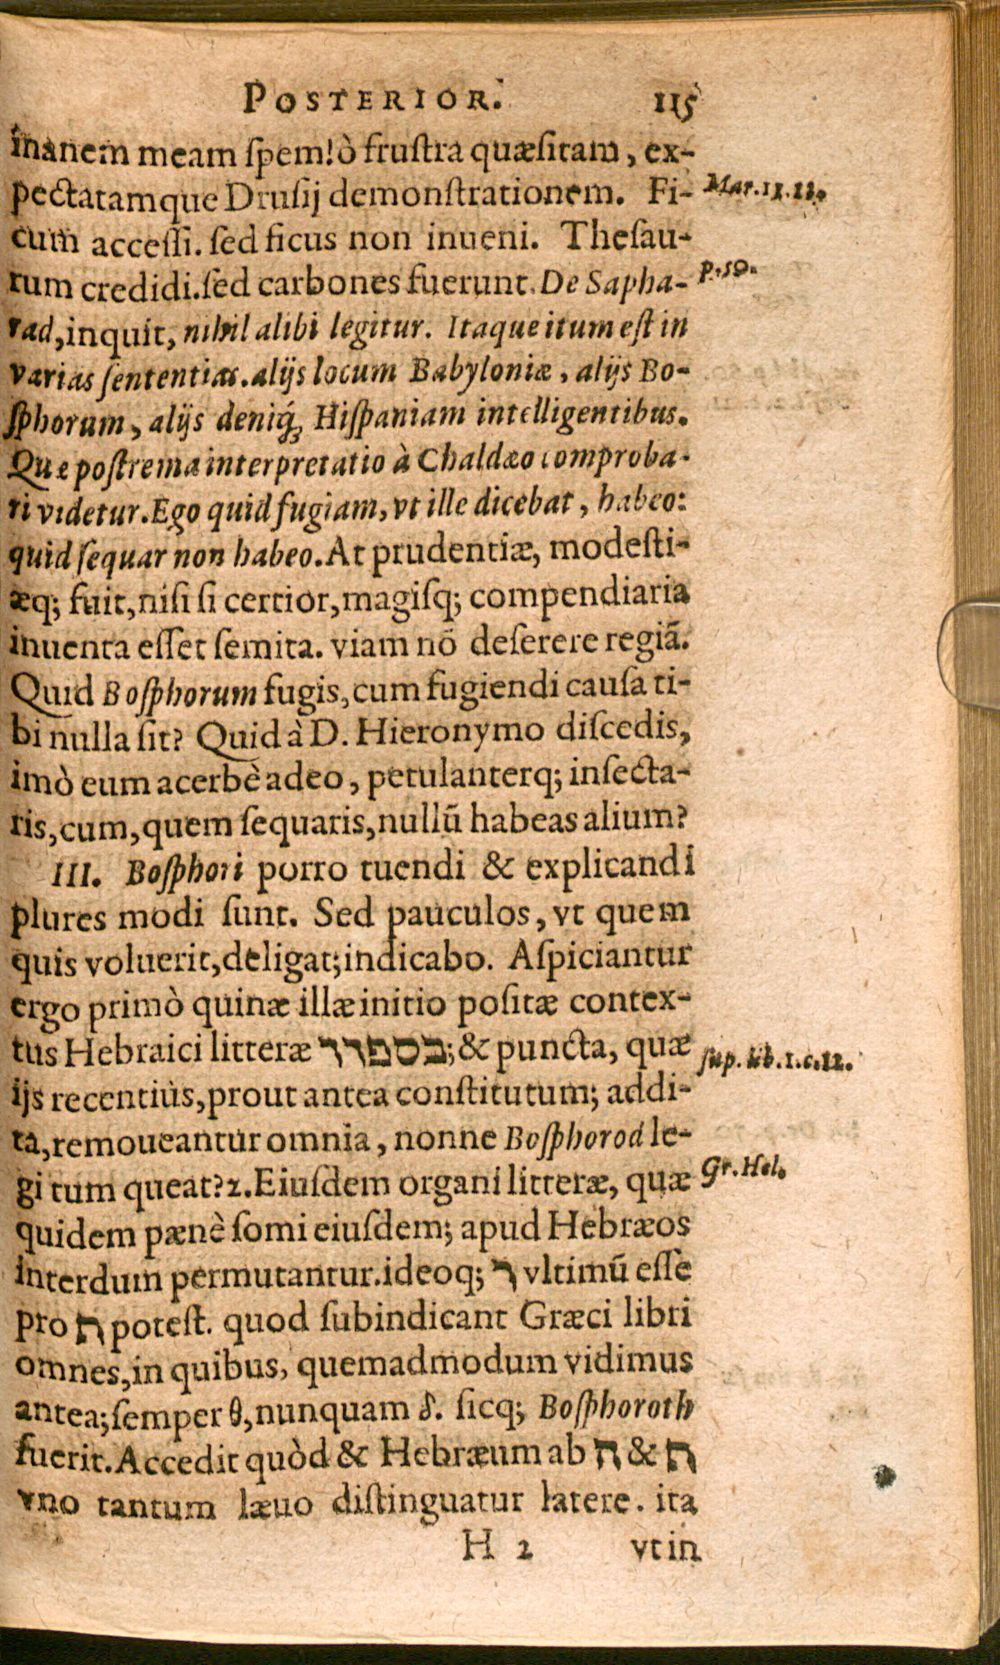 POSTERIOR. 115
inanem meam spem!ò frustra quæsitam, ex-
pectatamque Drusij demonstrationem. Fi-
Mar.11.13.
cum accessi. sed ficus non inueni. Thesau-
rum credidi.sed carbones fuerunt. De Sapha-
p.50.
rad,inquit, nihil alibi legitur. Itaque itum est in
varias sententias.alijs locum Babyloniæ, alijs Bo-
sphorum, alijs deniq́; Hispaniam intelligentibus.
Quæ postrema interpretatio à Chaldæo comproba-
ri videtur. Ego quid fugiam, vt ille dicebat, habeo:
quid sequar non habeo. At prudentiæ, modesti-
æq; fuit,nisi si certior,magisq; compendiaria
inuenta esset semita. viam nō deserere regiā.
Quid Bosphorum fugis,cum fugiendi causa ti-
bi nulla sit? Quid à D. Hieronymo discedis,
imò eum acerbè adeo, petulanterq; insecta-
ris,cum,quem sequaris,nullū habeas alium?
III. Bosphori porro tuendi & explicandi
plures modi sunt. Sed pauculos, vt quem
quis voluerit,deligat;indicabo. Aspiciantur
ergo primò quinæ illæ initio positæ contex-
tus Hebraici litteræ בספרד;& puncta, quæ
sup. lib.1.c.12.
ijs recentiùs,prout antea constitutum; addi-
ta,remoueantur omnia, nonne Bosphorod le-
gi tum queat?2.Eiusdem organi litteræ, quæ
Gr.Hel.
quidem pænè somi eiusdem; apud Hebræos
interdum permutantur.ideoq; ד vltimū esse
pro ת potest. quod subindicant Græci libri
omnes,in quibus, quemadmodum vidimus
antea;semper θ,nunquam δ. sicq; Bosphoroth
fuerit.Accedit quòd & Hebræum ab ח & ת
vno tantum læuo distinguatur latere. ita
H 2 vt in